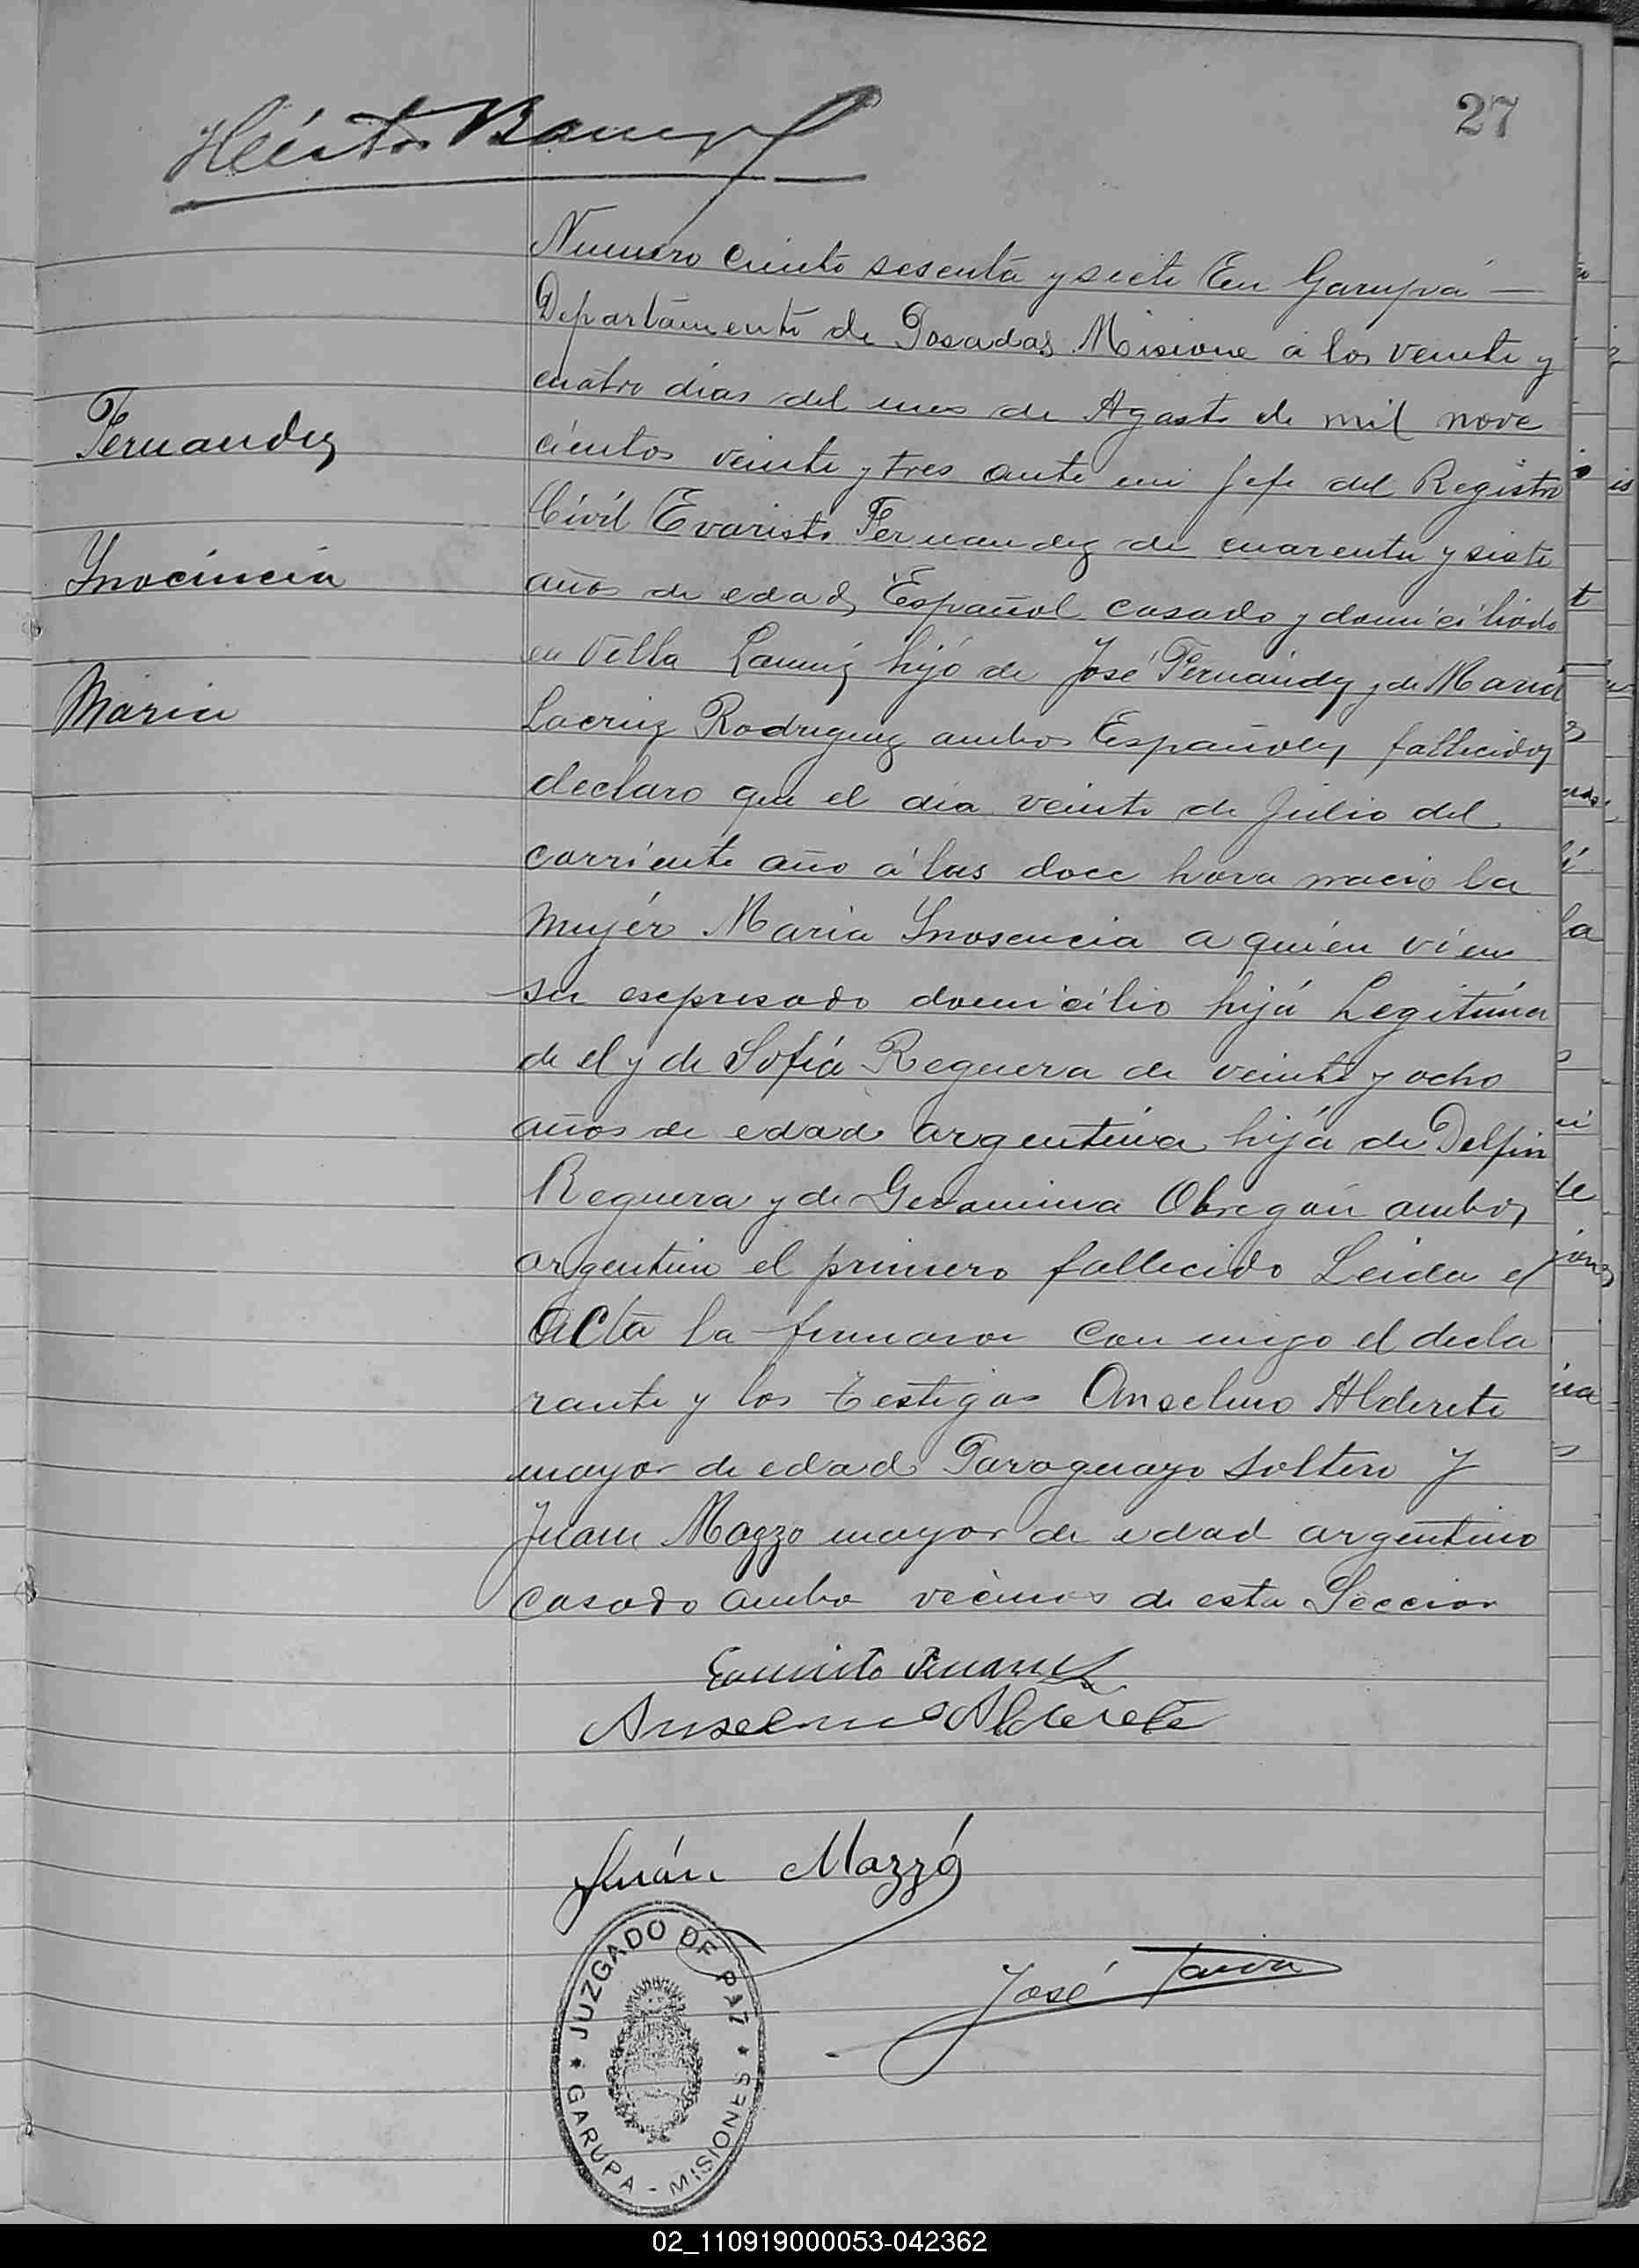 27
Héctor
Numero ciento sesenta y siete En Garupá —
Departamento de Posadas Misione á los veinte y
cuatro dias del mes de Agosto de mil nove
cientos veinte y tres ante mi Jefe del Registro
Civil Evaristo Fernandez de cuarenta y siete
años de edad, Español casado y domiciliado
en Villa Lanuz hijo de José Fernández y de Maria
Lacruz Rodriguez ambos Españoles fallecidos
declaro que el dia veinte de Julio del
corriente año á las doce hora nacio la
mujér Maria Inosencia a quien vi en
su esepresado domicilio hijá Legitima
de el y de Sofía Reguera de veinte y ocho
años de edad argentina hija de Delfin
Reguera y de Geronima Obregón ambos
argentino el primero fallecido Leida el
acta la firmaron con migo el decla
rante y los testigos Anselmo Alderete
mayor de edad Paraguayo soltero y
Juan Mazzo mayor de edad argentino
casado ambo vecinos de esta Seccion
Fernandez
Inocincia
Maria
Evaristo Fernandez
Anselmo Alderete
Juán Mazzó
José Paiva
JUZGADO DE PAZ
GARUPA - MISIONES
02_110919000053-042362